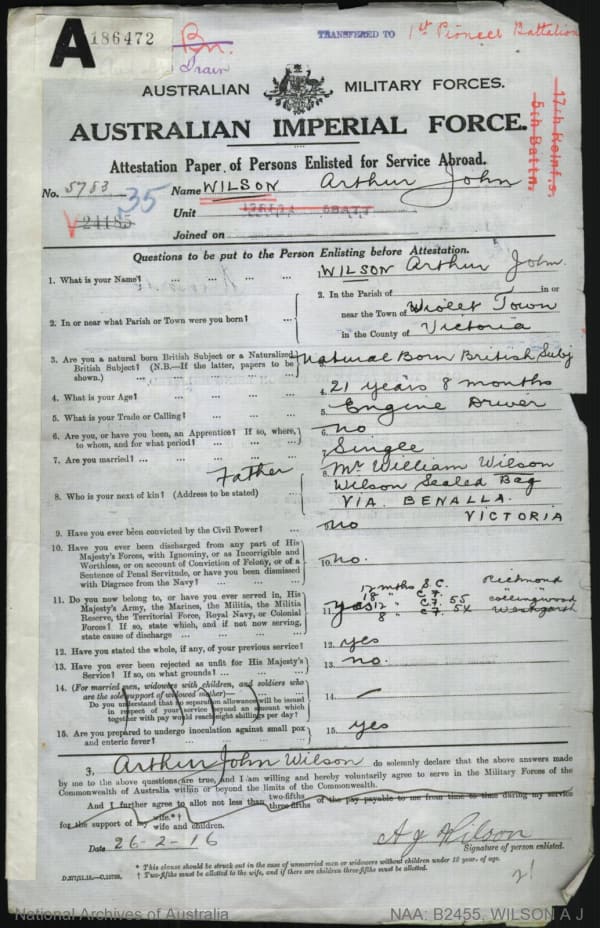 A 186472 Bn. TRANSFERRED TO 1st Pioneer Battalion
Train
AUSTRALIAN MILITARY FORCES.
AUSTRALIAN IMPERIAL FORCE.
17th Reinf.s.
5th Battn.
Attestation Paper of Persons Enlisted for Service Abroad.
No. 5783 35 Name WILSON Arthur John
V 24185 Unit
Joined on
Questions to be put to the Person Enlisting before Attestation.
1. What is your Name? ... ... ... ... 1. WILSON Arthur John.
2. In or near what Parish or Town were you born? ... 2. In the Parish of in or
near the Town of Violet Town
in the County of Victoria
3. Are you a natural born British Subject or a Naturalized British Subject? (N.B.—If the latter, papers to be shown.) ... 3. Natural Born British Subj
4. What is your Age? ... ... ... ... 4. 21 years 8 months
5. What is your Trade or Calling? ... ... ... 5. Engine Driver
6. Are you, or have you been, an Apprentice? If so, where, to whom, and for what period? ... 6. no
7. Are you married? ... ... ... ... 7. Single
8. Who is your next of kin? (Address to be stated) ... Father 8. Mr William Wilson
Wilson Sealed Bag
VIA. BENALLA.
VICTORIA
9. Have you ever been convicted by the Civil Power? ... 9. no
10. Have you ever been discharged from any part of His
Majesty's Forces, with Ignominy, or as Incorrigible and
Worthless, or on account of Conviction of Felony, or of a
Sentence of Penal Servitude, or have you been dismissed
with Disgrace from the Navy? ... ... 10. no.
11. Do you now belong to, or have you ever served in, His
Majesty's Army, the Marines, the Militia, the Militia
Reserve, the Territorial Force, Royal Navy, or Colonial
Forces? If so, state which, and if not now serving,
state cause of discharge ... ... 11. yes
12 mths S.C. Richmond
18 " C.F.
12 " C.F. 55 Collingwood
8 " C.F. 54
12. Have you stated the whole, if any, of your previous service? 12. yes
13. Have you ever been rejected as unfit for His Majesty's
Service? If so, on what grounds? ... ... 13. no.
14. (For married men, widowers with children, and soldiers who
are the sole support of widowed mother)—
Do you understand that no separation allowance will be issued
in respect of your service beyond an amount which
together with pay would reach eight shillings per day? 14.
15. Are you prepared to undergo inoculation against small pox
and enteric fever? ... ... ... 15. yes
I, Arthur John Wilson do solemnly declare that the above answers made
by me to the above questions are true, and I am willing and hereby voluntarily agree to serve in the Military Forces of the
Commonwealth of Australia within or beyond the limits of the Commonwealth.
And I further agree to allot not less than two-fifths three-fifths of the pay payable to me from time to time during my service
for the support of my wife.*†
wife and children.
Date 26-2-16 A J Wilson
Signature of person enlisted.
21
* This clause should be struck out in the case of unmarried men or widowers without children under 18 year. of age.
† Two-fifths must be allotted to the wife, and if there are children three-fifths must be allotted.
National Archives of Australia NAA: B2455, WILSON A J